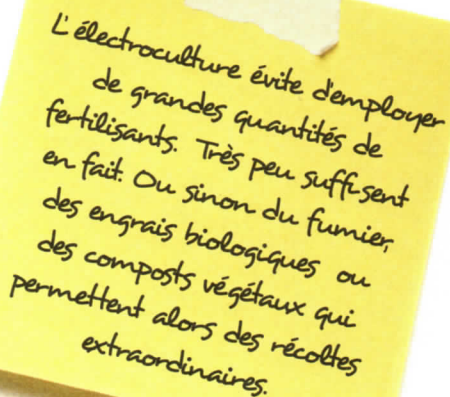 L'électroculture évite d'employer
de grandes quantités de
fertilisants. Très peu suffisent
en fait. Ou sinon du fumier,
des engrais biologiques ou
des composts végétaux qui
permettent alors des récoltes
extraordinaires.